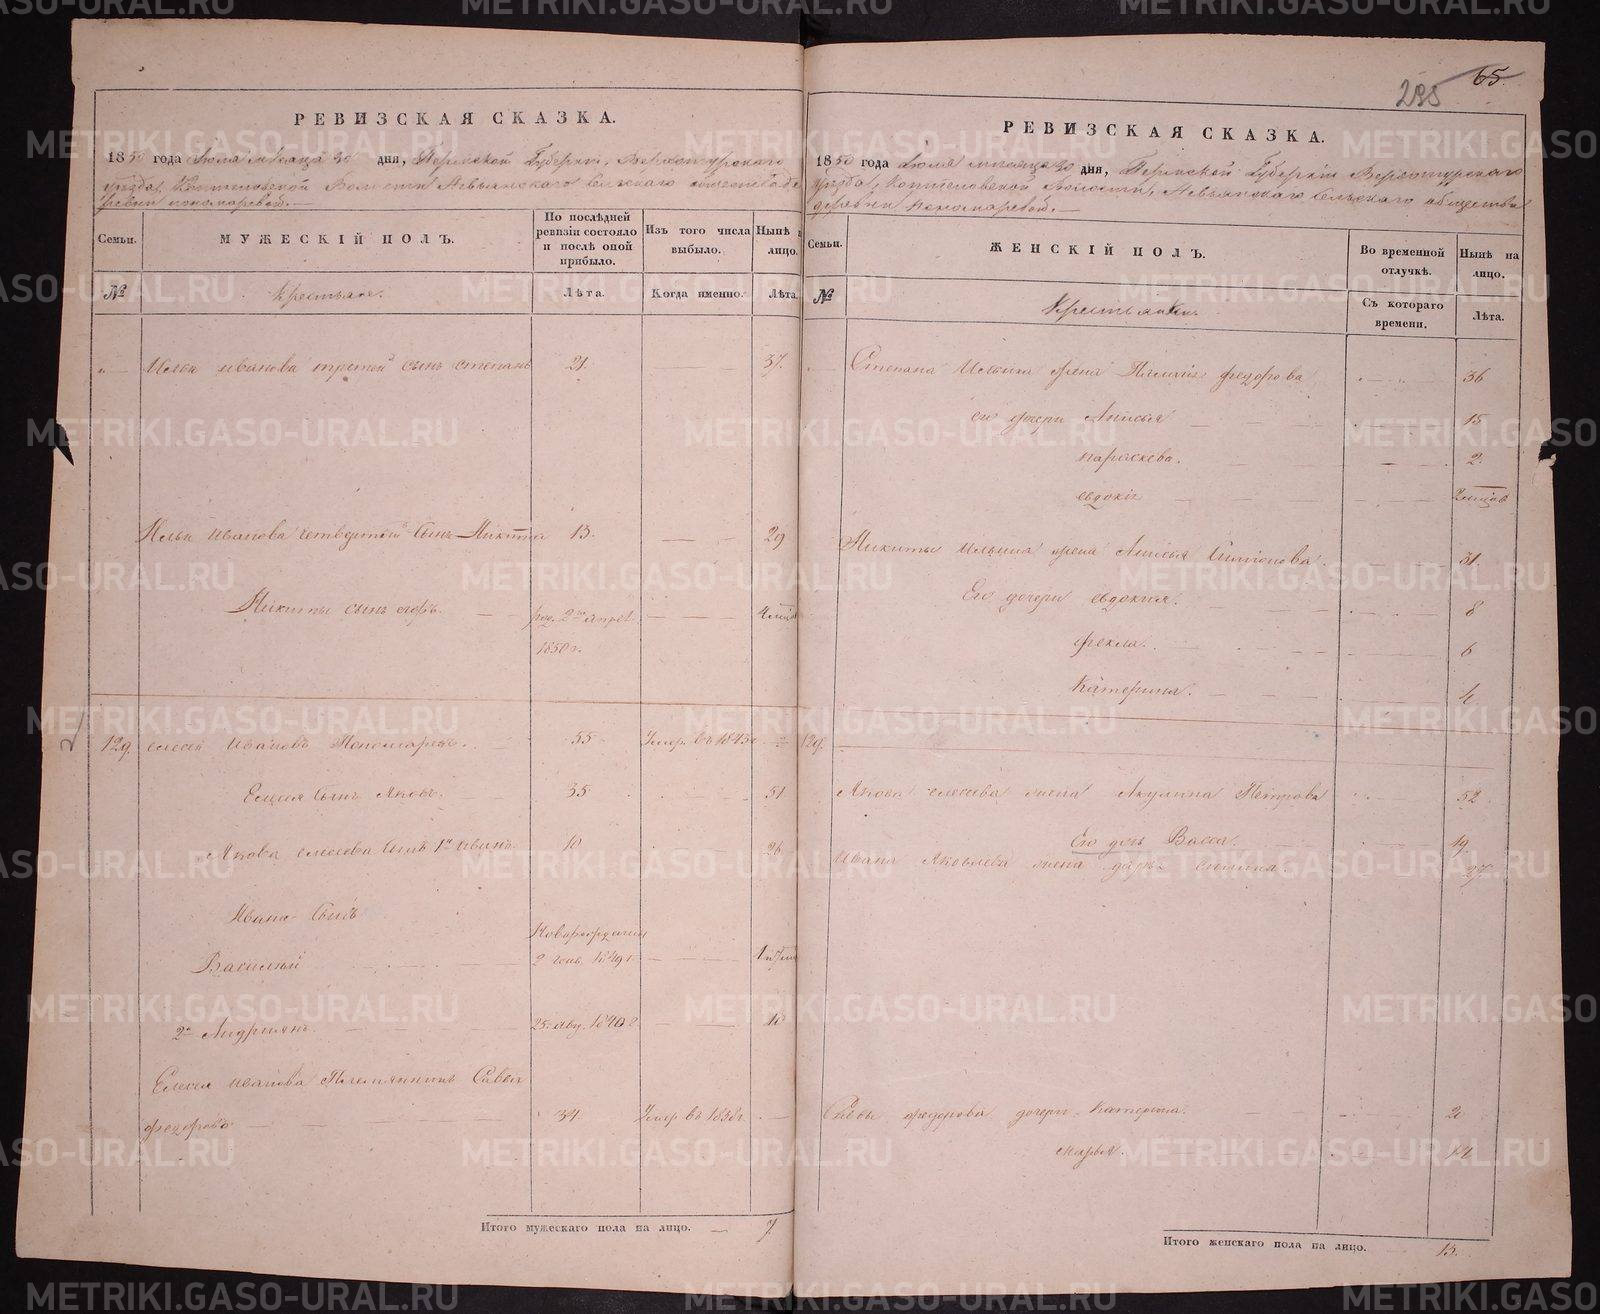 65.
295
РЕВИЗСКАЯ СКАЗКА.
1850 года Июля месяца 30 дня, Пермской Губерніи, Верхотурскаго
уезда, Волости Невьянскаго Сельскаго общества де
ревни Пономаревой.
Семьи.
МУЖЕСКІЙ ПОЛЪ.
По послѣдней ревизіи состояло и послѣ оной прибыло.
Изъ того числа выбыло.
Нынѣ лицо.
№
Крестьяне.
Лѣта.
Когда именно.
Лѣта.
Ильи Иванова третій сынъ Степанъ 21. 37.
Ильи Иванова четвертой сынъ Никита 13. 29
Никиты сынъ род. 2го апрел 4 мѣсяц
1850 г.
129. Елесей Ивановъ Пономаревъ. 55 Умер. въ 1843 г.
Елисея сынъ Яковъ. 35 51
Якова Елесеева сынъ 1й Иванъ 10 26
Ивана сынъ
Новорожденный
Василий 2 генв. 1849 г
2й Андриянъ. 25 авг. 1840 10
Елесея Иванова Племянникъ Савва
Федоровъ 34 Умер. въ 1838 г.
Итого мужескаго пола на лицо. 7
РЕВИЗСКАЯ СКАЗКА.
1850 года Июля месяца 30 дня, Пермской Губерніи Верхотурскаго
уезда, Волости, Невьянскаго Сельскаго общества
деревни Пономаревой.
Семьи.
ЖЕНСКІЙ ПОЛЪ.
Во временной отлучкѣ.
Нынѣ на лицо.
№
Крестьянки
Съ котораго времени.
Лѣта.
Степана Ильина жена Палагія Федорова 36
его дочери Анисья 15
Параскева. 2.
Евдокія 2 мѣсяцов
Никиты Ильина жена Анисья 31.
Его дочери Евдокия. 8
Фекла. 6
Катерина. 4
129.
Якова Елесеева жена Акулина Петрова 52
Его дочь Васса. 19
Ивана Яковлева жена Дарья 27.
Савы Федорова дочери Катерина. 20
Марья. 14
Итого женскаго пола на лицо. 13.
METRIKI.GASO-URAL.RU